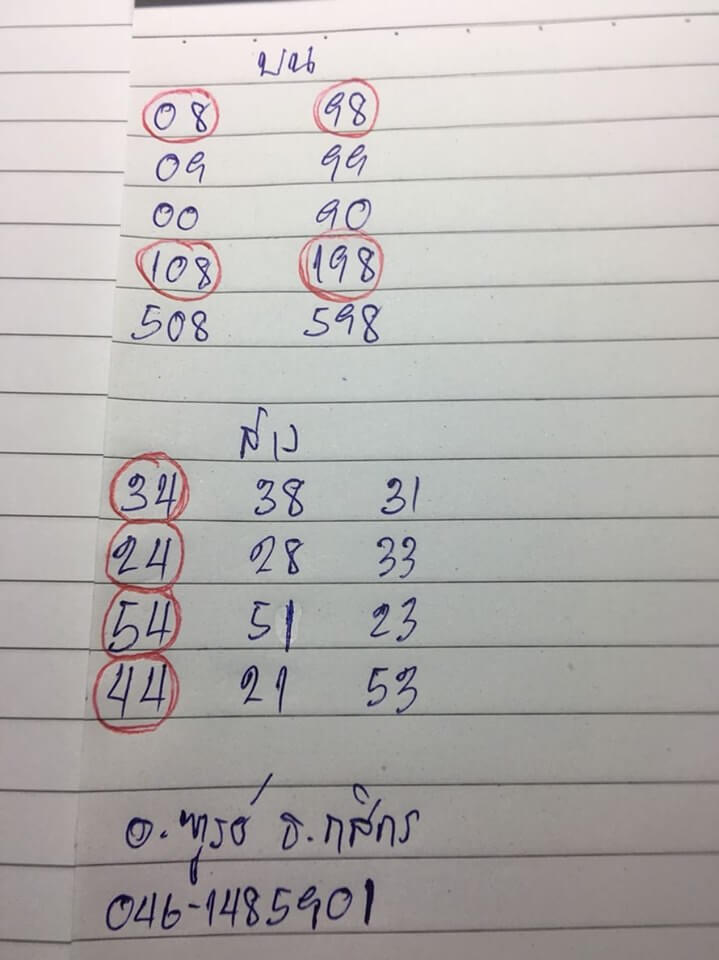 บน
08 98
09 99
00 90
108 198
508 598
ล่าง
34 38 31
24 28 33
54 51 23
44 21 53
อ. ธ.กสิกร
046-1485901